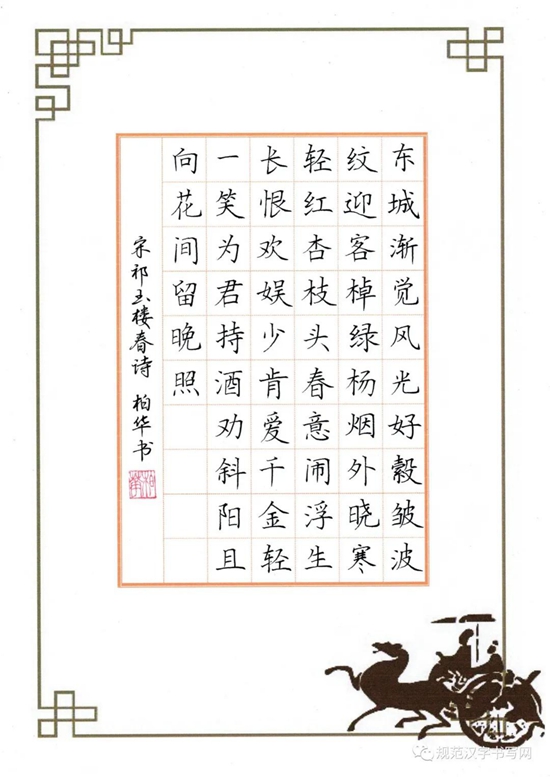 东城渐觉风光好縠皱波
纹迎客棹绿杨烟外晓寒
轻红杏枝头春意闹浮生
长恨欢娱少肯爱千金轻
一笑为君持酒劝斜阳且
向花间留晚照
宋祁玉楼春诗 柏华书
规范汉字书写网